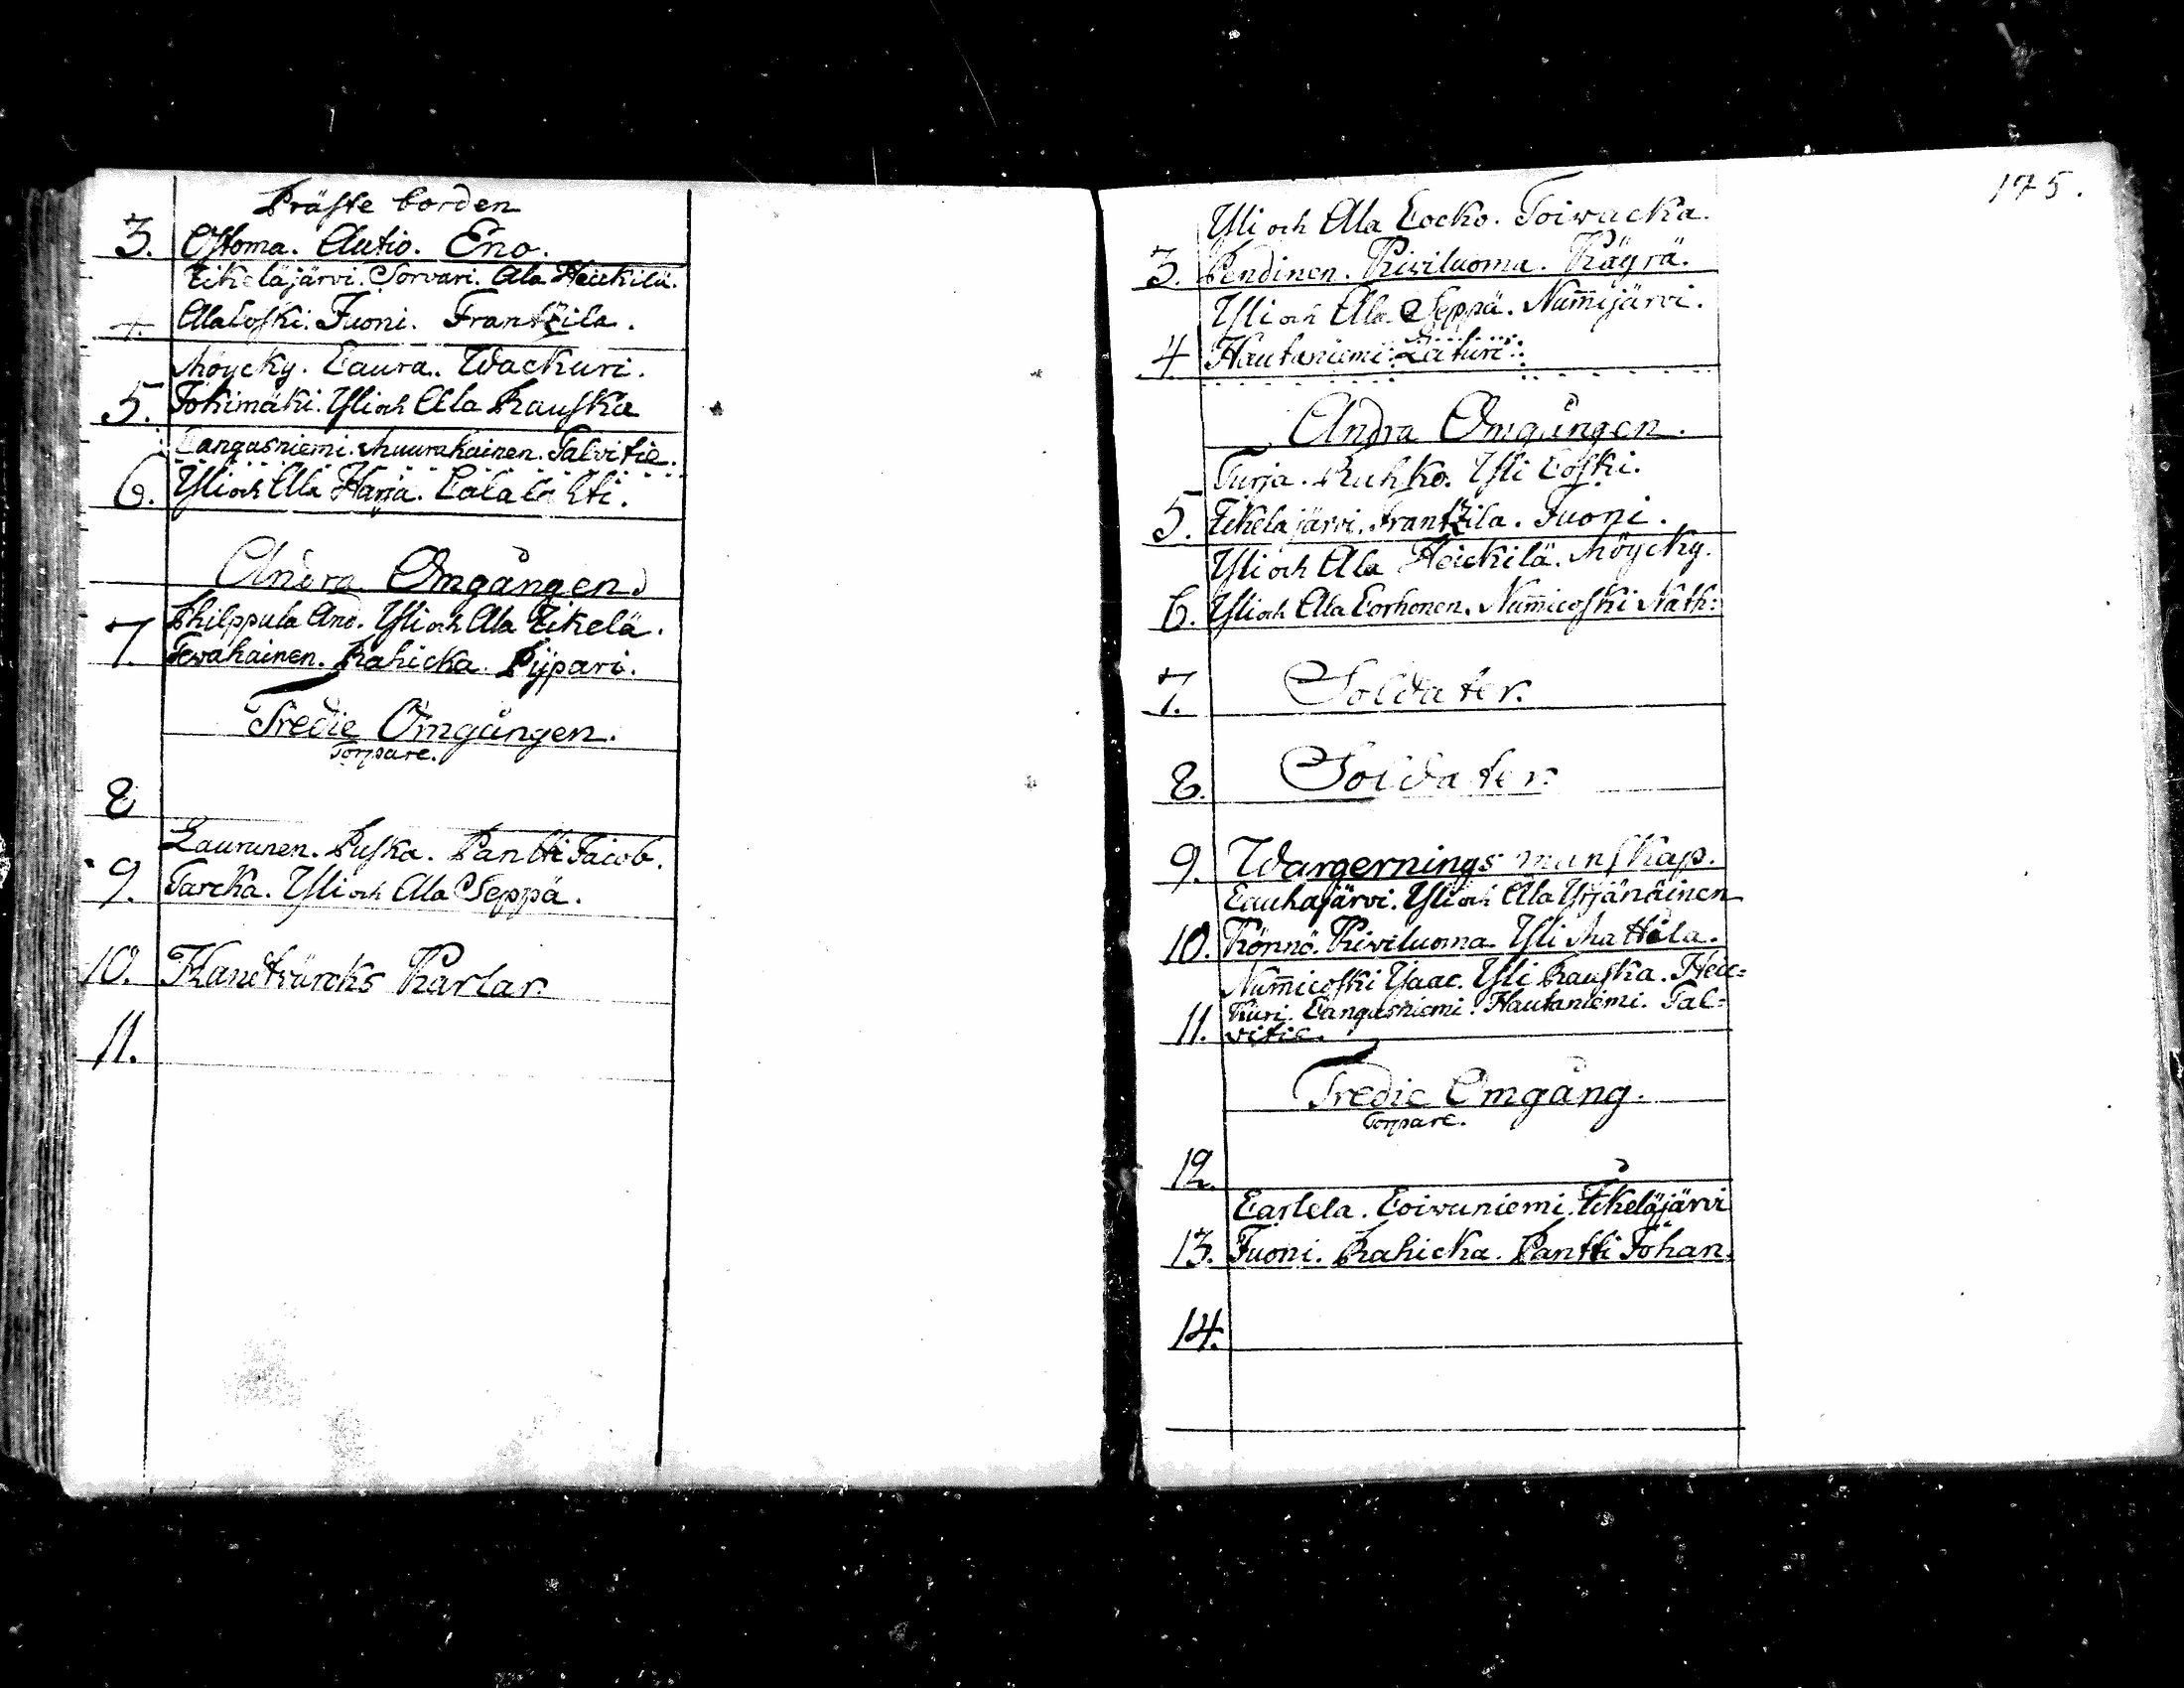 Präste borden
3. Ojloma. Autio. Eno.
Ikeläjärvi. Sorvari. Ala Heickilä.
4. Ala Coski. Juoni. Frantzila.
Möycky. Laura. Wackuri.
5. Jokimäki. Yli och Ala Rauska
Cangasniemi. Muurahainen. Talvitie.
6. Yli och Ala Harja. Cala Lahti.
Andra Omgången
7. Philppula And. Yli och Ala Ikelä.
Tervahainen. Rahicka. Pijpari.
Tredie Omgången.
Torpare.
8
Laurunen. Puska. Pantti Jacob.
9. Tarcka. Yli och Ala Seppä.
10. Handtvärcks Karlar
11.
175.
Yli och Ala Cocko. Toivacka.
3. Pendinen. Kiviluoma. Käyrä.
Yli och Ala Seppä. Num̄ijärvi.
4 Hautaniemi. Laturi.
Andra Omgången.
Turja. Ruhko. Yli Coski.
5. Ikeläjärvi. Frantzila. Juoni.
Yli och Ala Heickilä. Möycky.
6. Yli och Ala Corhonen. Num̄icoski Math:
7. Soldater.
8. Soldater.
9. Wargernings manskap.
Cauhajärvi. Yli och Ala Yrjänäinen
10. Rönnö. Kiviluoma. Yli Mattila.
Num̄icoski Ysaac. Yli Rauska. Heic=
11. Kuri. Cangasniemi. Hautaniemi. Tal=
vitie.
Tredie Omgång.
Torpare.
12.
Carlela. Coivuniemi. Ikeläjärvi
13. Juoni. Rahicka. Pantti Johan.
14.